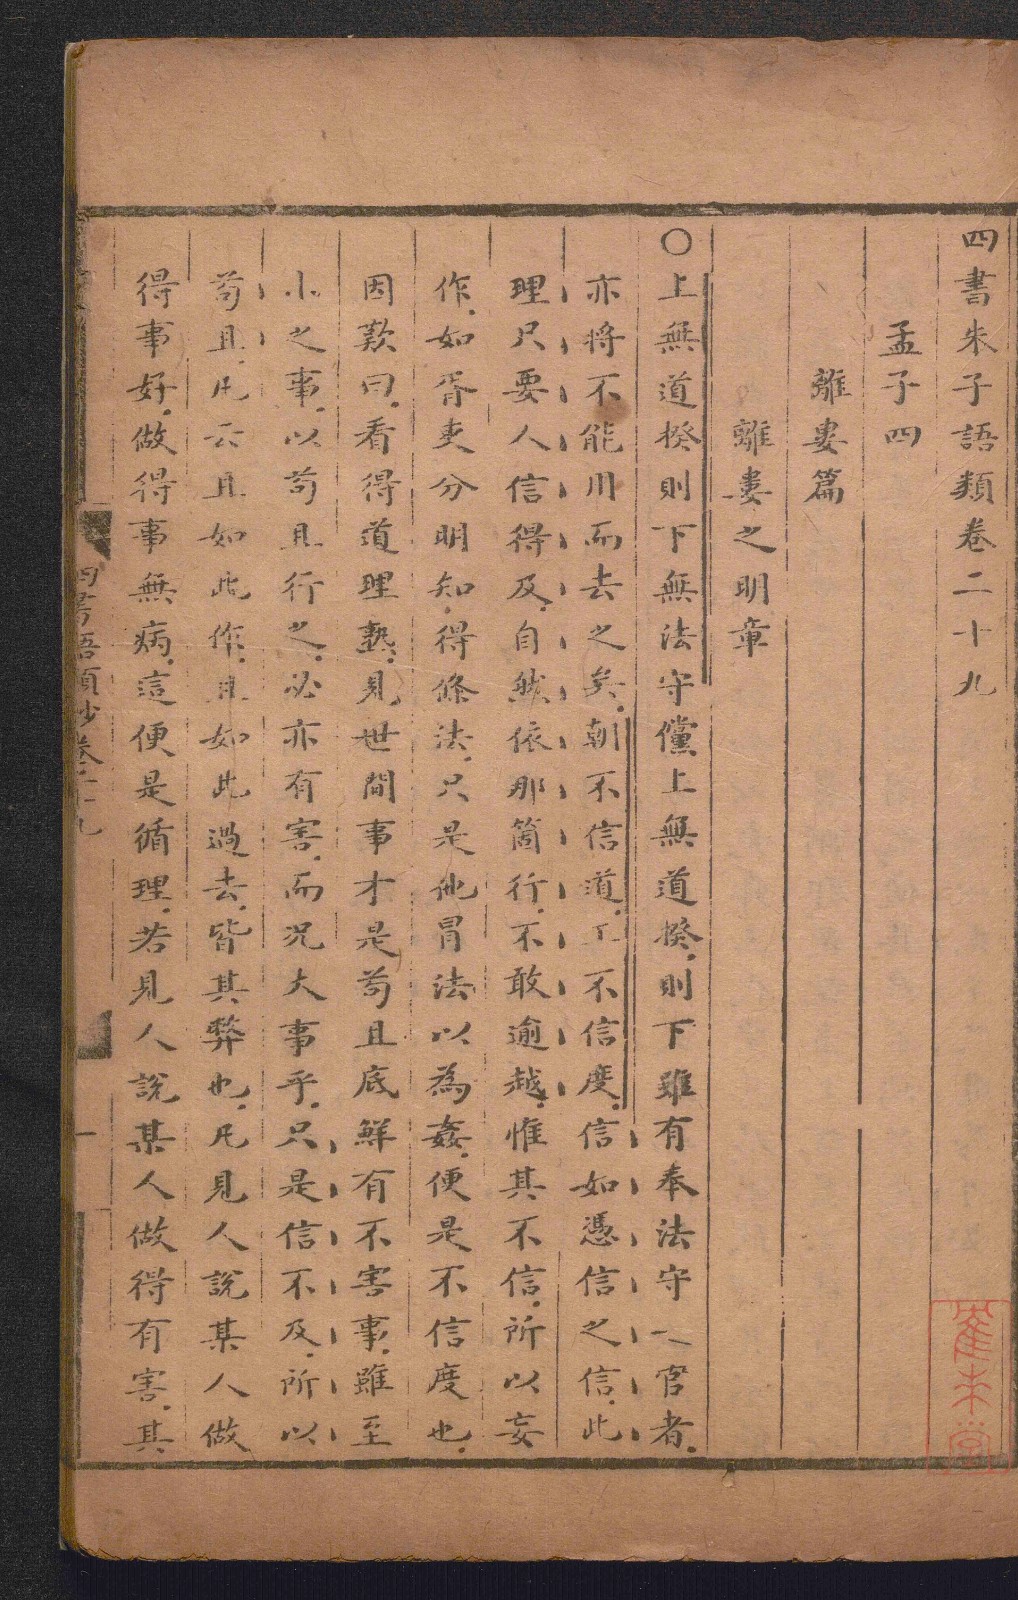 四書朱子語類卷二十九
孟子四
離婁篇
離婁之明章
〇上無道揆則下無法守儻上無道揆則下雖有奉法守之官者
亦將不能用而去之矣朝不信道工不信度信如憑信之信此
理只要人信得及自然依那箇行不敢逾越惟其不信所以妄
作如胥吏分明知得條法只是他冒法以為姦便是不信度也
因歎曰看得道理熟見世間事才是苟且底鮮有不害事雖至
小之事以苟且行之必亦有害而况大事乎只是信不及所以
苟且凡云且如此作且如此過去皆其弊也凡見人說某人做
得事好做得事無病這便是循理若見人說某人做得有害其
四書語類抄卷二十九
一